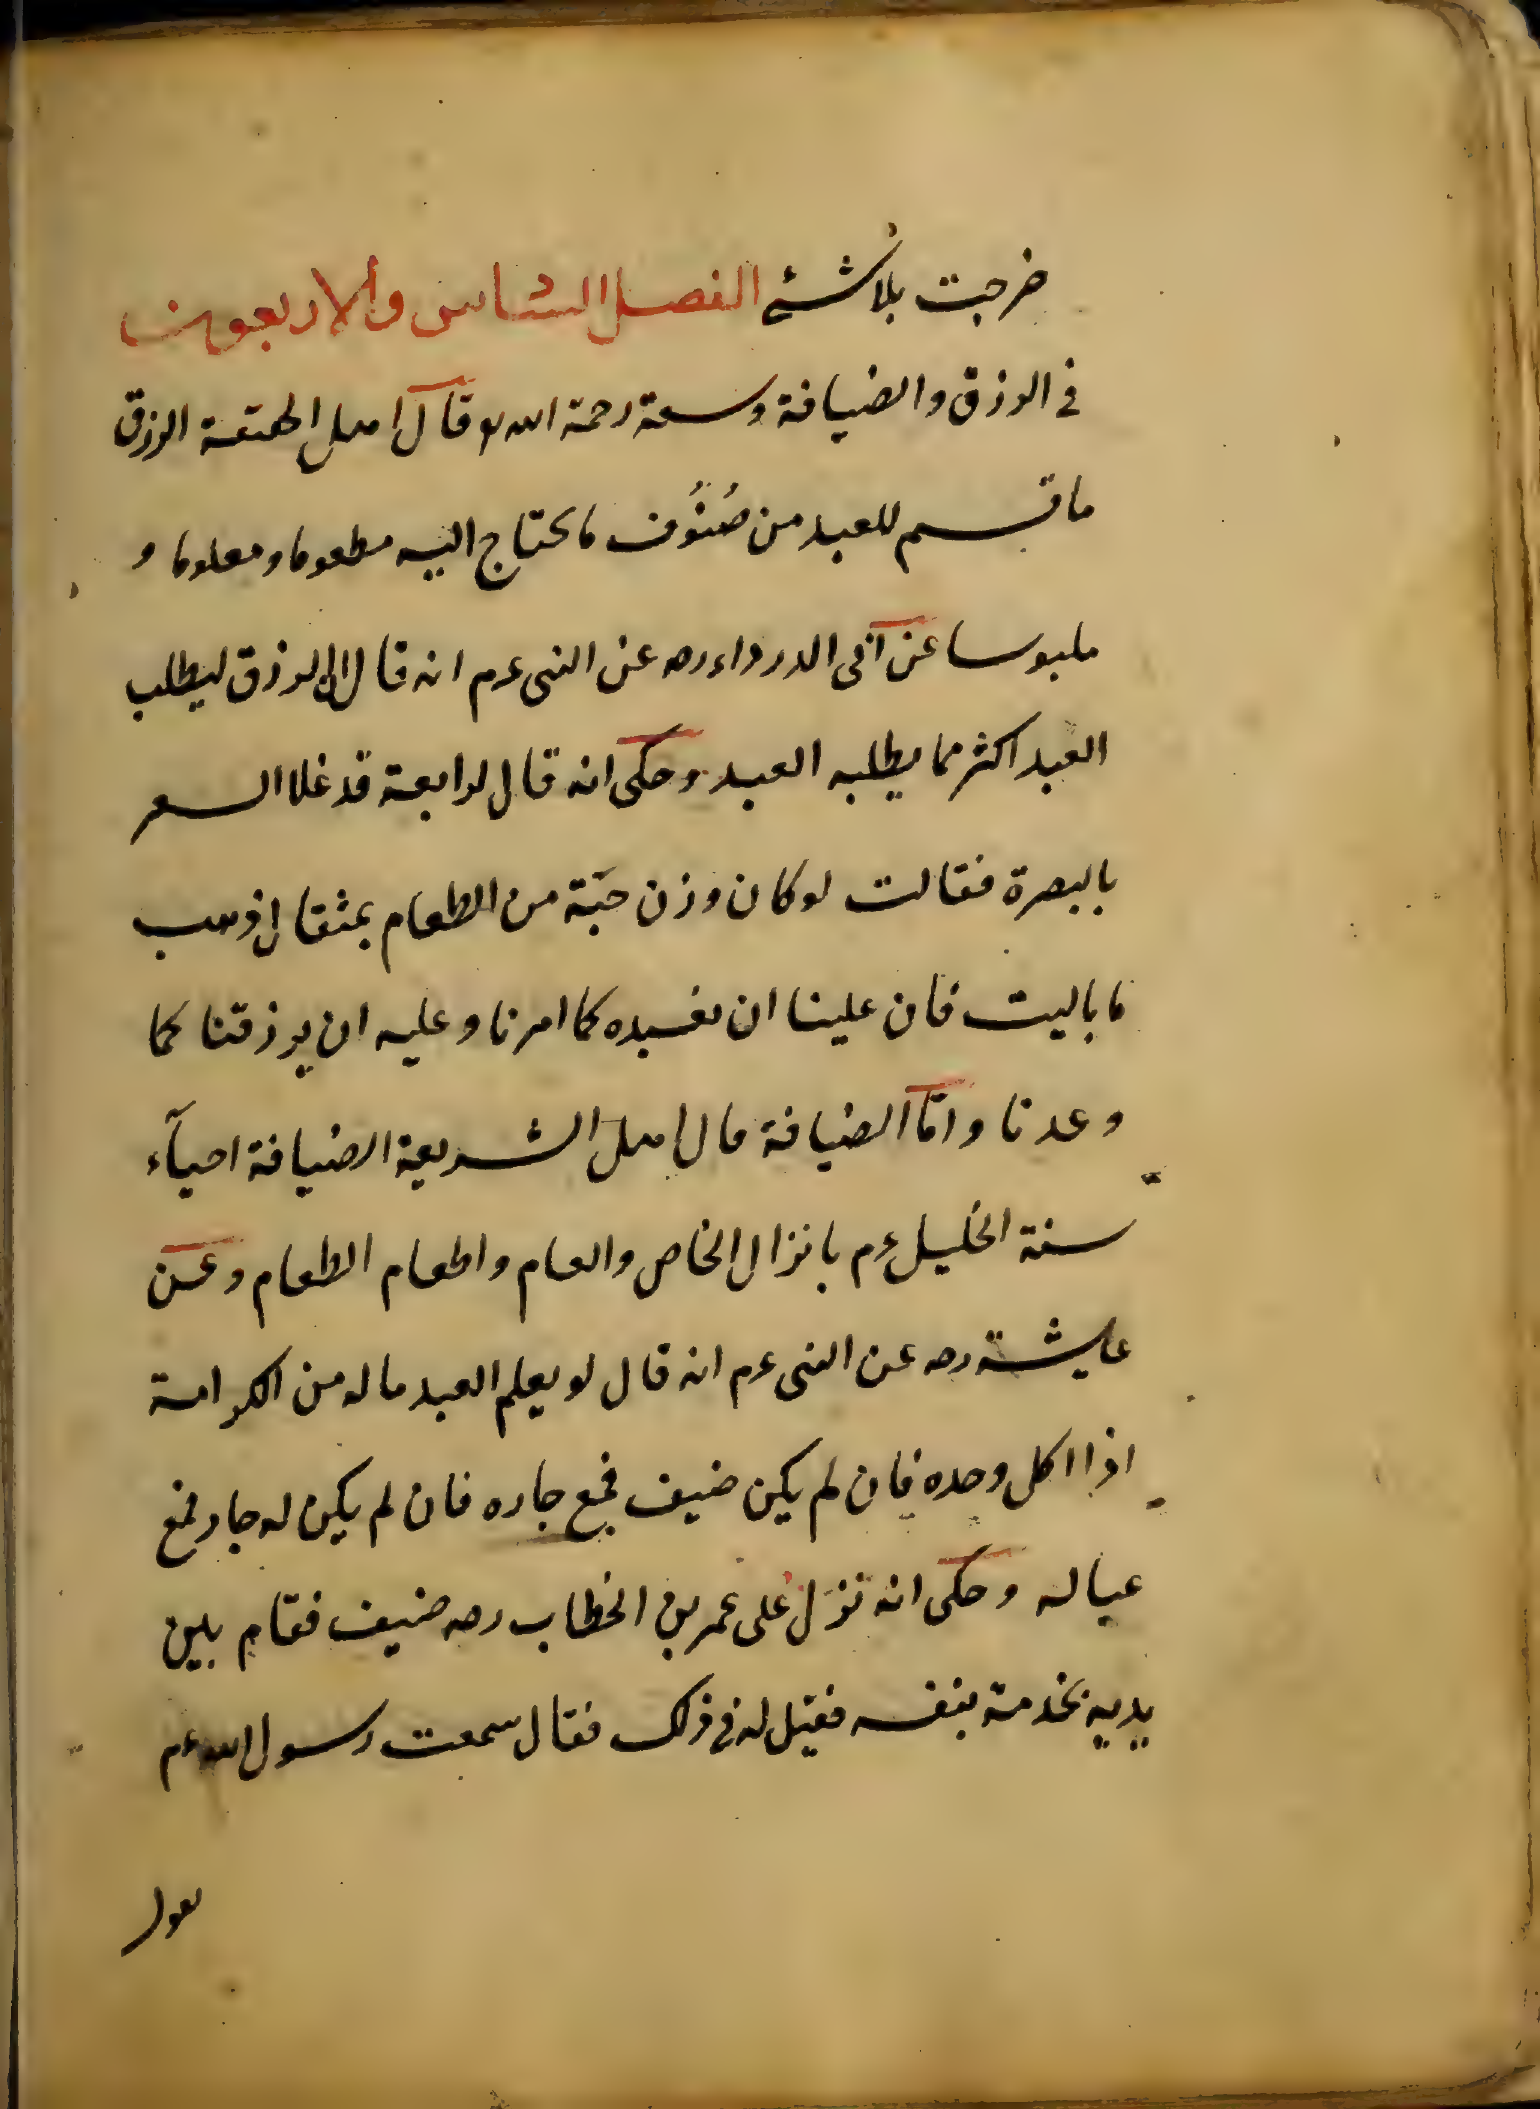 خرجت بلا شئ الفصل السادس والاربعون
في الرزق والضيافة وسعة رحمة الله وقال اهل الحقيقة الرزق
ما قسم للعبد من صُنُوف ما يحتاج اليه مطعوما ومعلوما و
ملبوسا عن ابى الدرداء رضه عن النبى عم انه قال ان الرزق ليطلب
العبد اكثر مما يطلبه العبد وحكى انه قال لرابعة قد غلا السعر
بالبصرة فقالت لو كان وزن حبّة من الطعام بمثقال ذهب
ما باليت فان علينا ان نعبده كما امرنا وعليه ان يرزقنا كما
وعدنا وامّا الضيافة قال اهل الشريعة الضيافة احيآء
سنة الخليل عم بانزال الخاص والعام واطعام الطعام وعن
عايشة رضه عن النبى عم انه قال لو يعلم العبد ما له من الكرامة
اذا اكل وحده فان لم يكن ضيف فمع جاره فان لم يكن له جار فمع
عياله وحكى انه نزل على عمر بن الخطاب رضه ضيف فقام بين
يديه بخدمة بنفسه فقيل له في ذلك فقال سمعت رسول الله عم
يقول